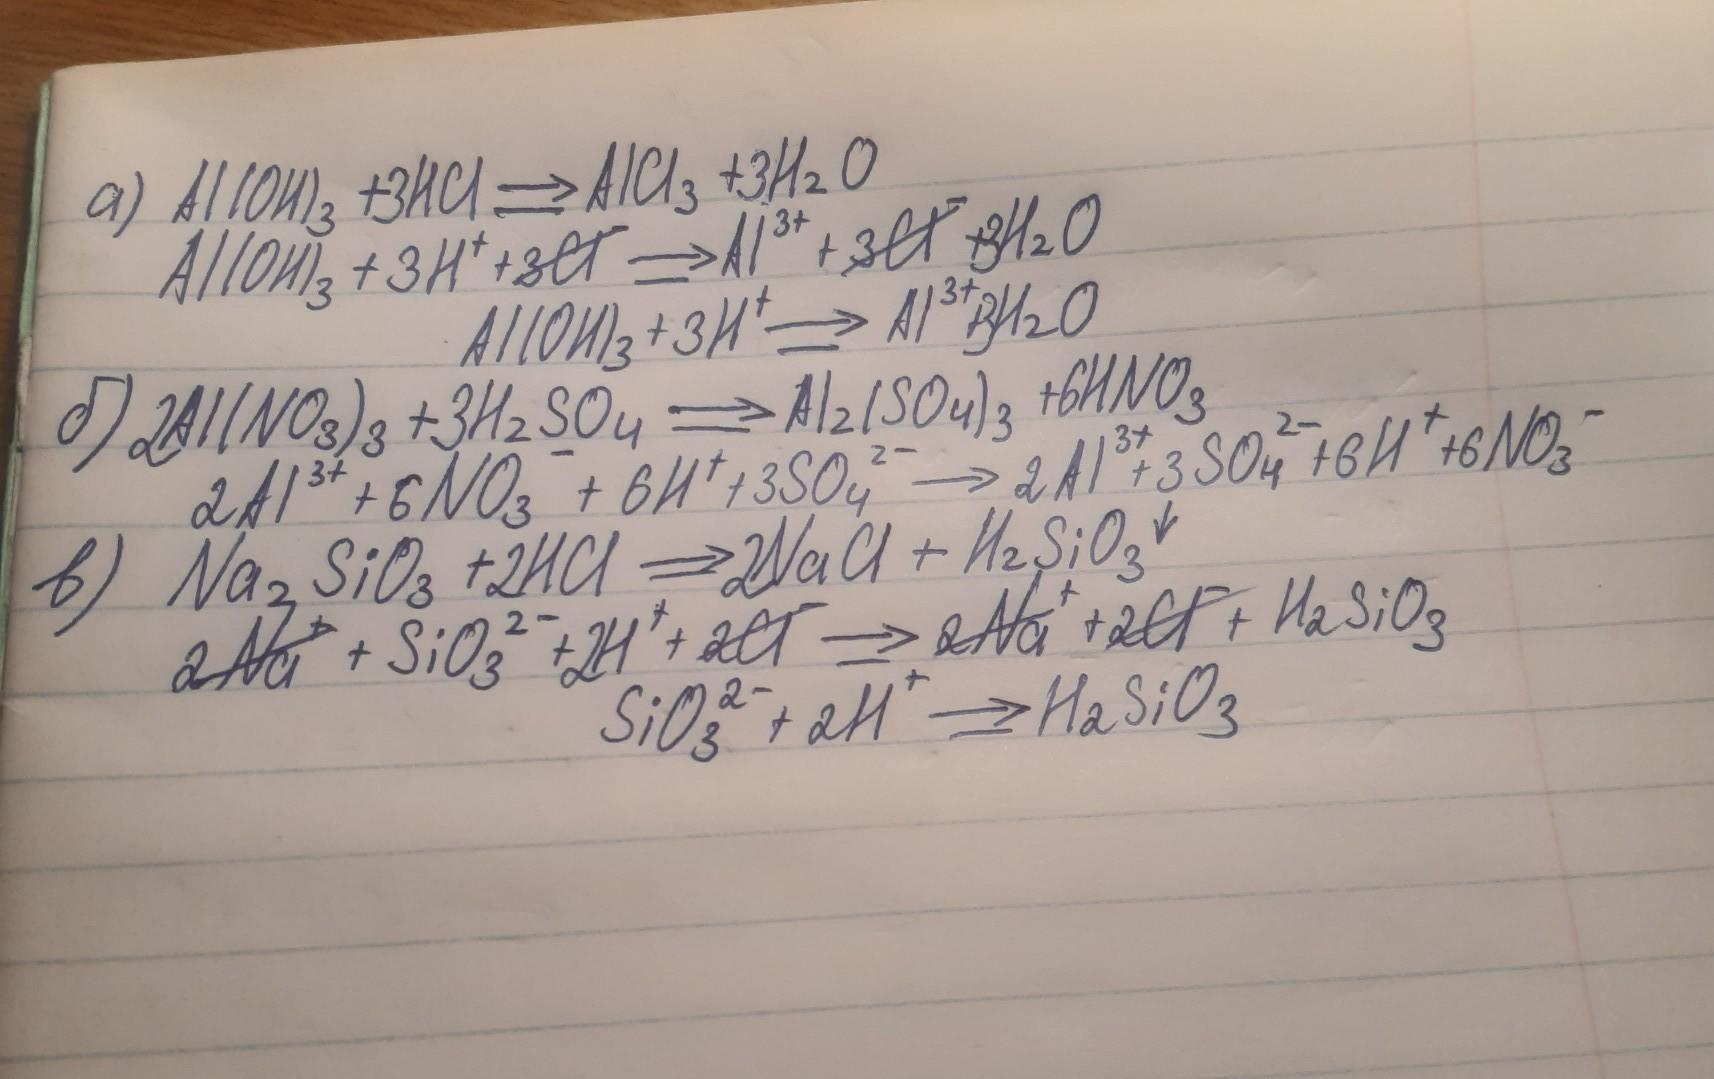 а) Al(OH)₃ +3HCl ⇒ AlCl₃ +3H₂O
Al(OH)₃ + 3H⁺ + 3Cl⁻ ⇒ Al³⁺ + 3Cl⁻ +3H₂O
Al(OH)₃ + 3H⁺ ⇒ Al³⁺+3H₂O
б) 2Al(NO₃)₃ +3H₂SO₄ ⇒ Al₂(SO₄)₃ +6HNO₃
2Al³⁺ + 6NO₃⁻ + 6H⁺ + 3SO₄²⁻ → 2Al³⁺ + 3SO₄²⁻ + 6H⁺ + 6NO₃⁻
в) Na₂SiO₃ +2HCl ⇒ 2NaCl + H₂SiO₃↓
2Na⁺ + SiO₃²⁻ +2H⁺ + 2Cl⁻ ⇒ 2Na⁺ + 2Cl⁻ + H₂SiO₃
SiO₃²⁻ + 2H⁺ ⇒ H₂SiO₃